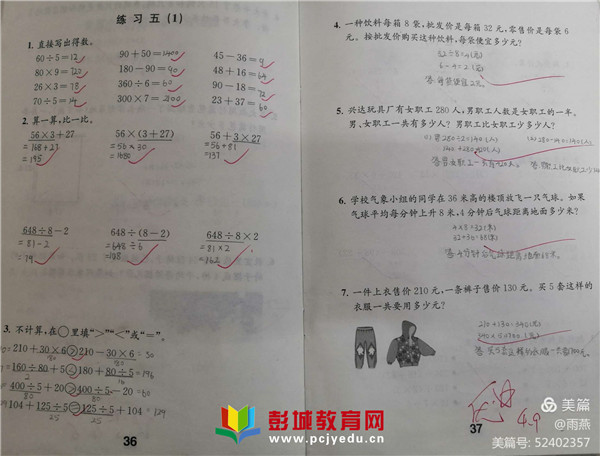 练 习 五 (1)
1. 直接写出得数。
60÷5=12 90+50=1400 45-36=9
80×9=720 180-90=90 48+16=64
26×3=78 360÷6=60 90-18=72
70÷5=14 300×7=2100 23+37=60
2. 算一算,比一比。
56×3+27 56×(3+27) 56+3×27
=168+27 =56×30 =56+81
=195 =1680 =137
648÷8-2 648÷(8-2) 648÷8×2
=81-2 =648÷6 =81×2
=79 =108 =162
3. 不计算,在○里填“>”“<”或“=”。
210+30×6>210-30×6
160÷80+5<180+80÷5
400÷5+20>400÷5-20
104+125÷5=125÷5+104
36
4. 一种饮料每箱 8 袋,批发价是每箱 32 元,零售价是每袋 6
元。按批发价购买这种饮料,每袋便宜多少元?
32÷8=4(元)
6-4=2(元)
答:每袋便宜2元。
5. 兴达玩具厂有女职工 280 人,男职工人数是女职工的一半。
男、女职工一共有多少人? 男职工比女职工少多少人?
6. 学校气象小组的同学在 36 米高的楼顶放飞一只气球。如果
气球平均每分钟上升 8 米,4 分钟后气球距离地面多少米?
4×8=32(米)
7. 一件上衣售价 210 元,一条裤子售价 130 元。买 5 套这样的
衣服一共要用多少元?
210+130=340(元)
优
4.9
37
彭城教育网
www.pcjyedu.cn
美篇
@雨燕
美篇号: 52402357